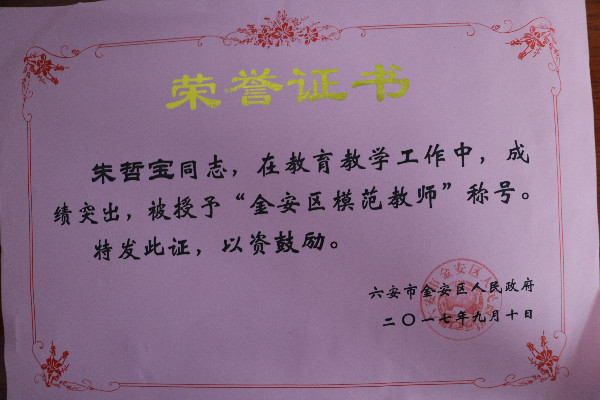 荣誉证书
朱哲宝同志，在教育教学工作中，成
绩突出，被授予“金安区模范教师”称号。
特发此证，以资鼓励。
六安市金安区人民政府
二〇一七年九月十日